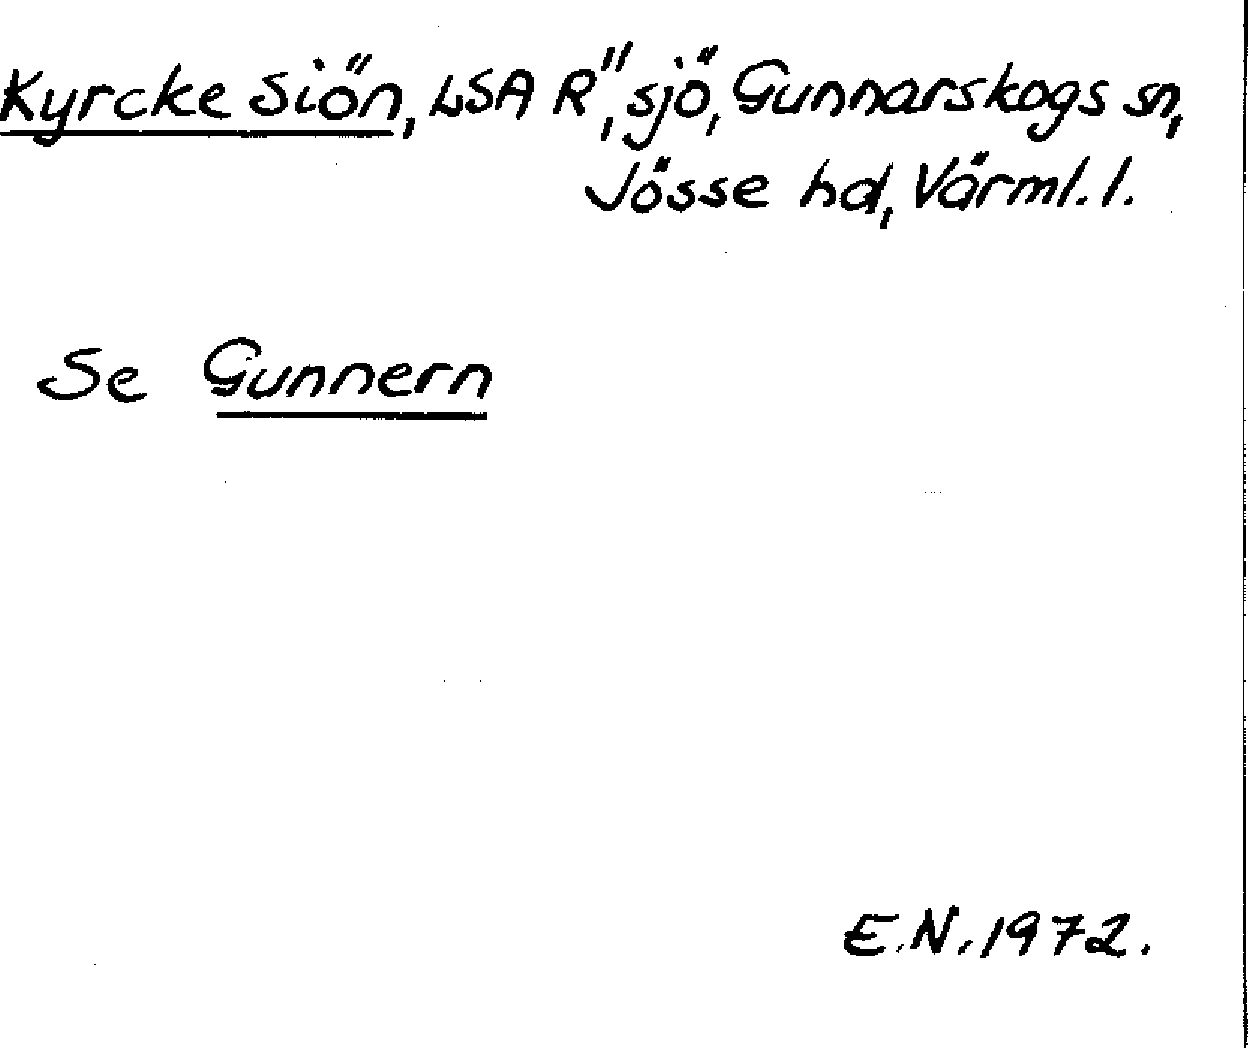 Kyrcke Siön, LSA R", sjö, Gunnarskogs sn,
Jösse hd, Värml. l.
Se Gunnern
E.N. 1972.